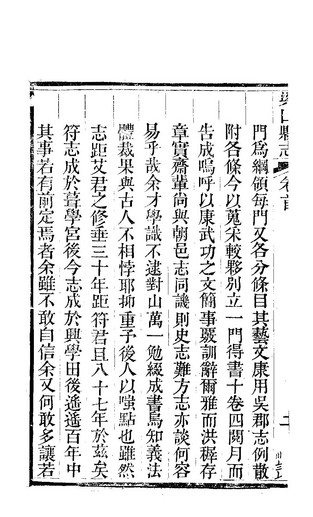 門為綱領每門又各分條目其藝文康用吳郡志例散
附各條今以蒐采較夥別立一門得書十卷四閱月而
告成嗚呼以康武功之文簡事覈訓辭爾雅而洪稺存
章實齋輩尚與朝邑志同議則史志難方志亦談何容
易乎哉余才學識不逮對山萬一勉綴成書烏知義法
體裁果與古人不相悖耶抑重予後人以嗤點也雖然
志距艾君之修垂三十年距符君且八十七年於茲矣
符志成於葺學宮後今志成於興學田後遙遙百年中
其事若有前定焉者余雖不敢自信余又何敢多讓若
縣志
卷首